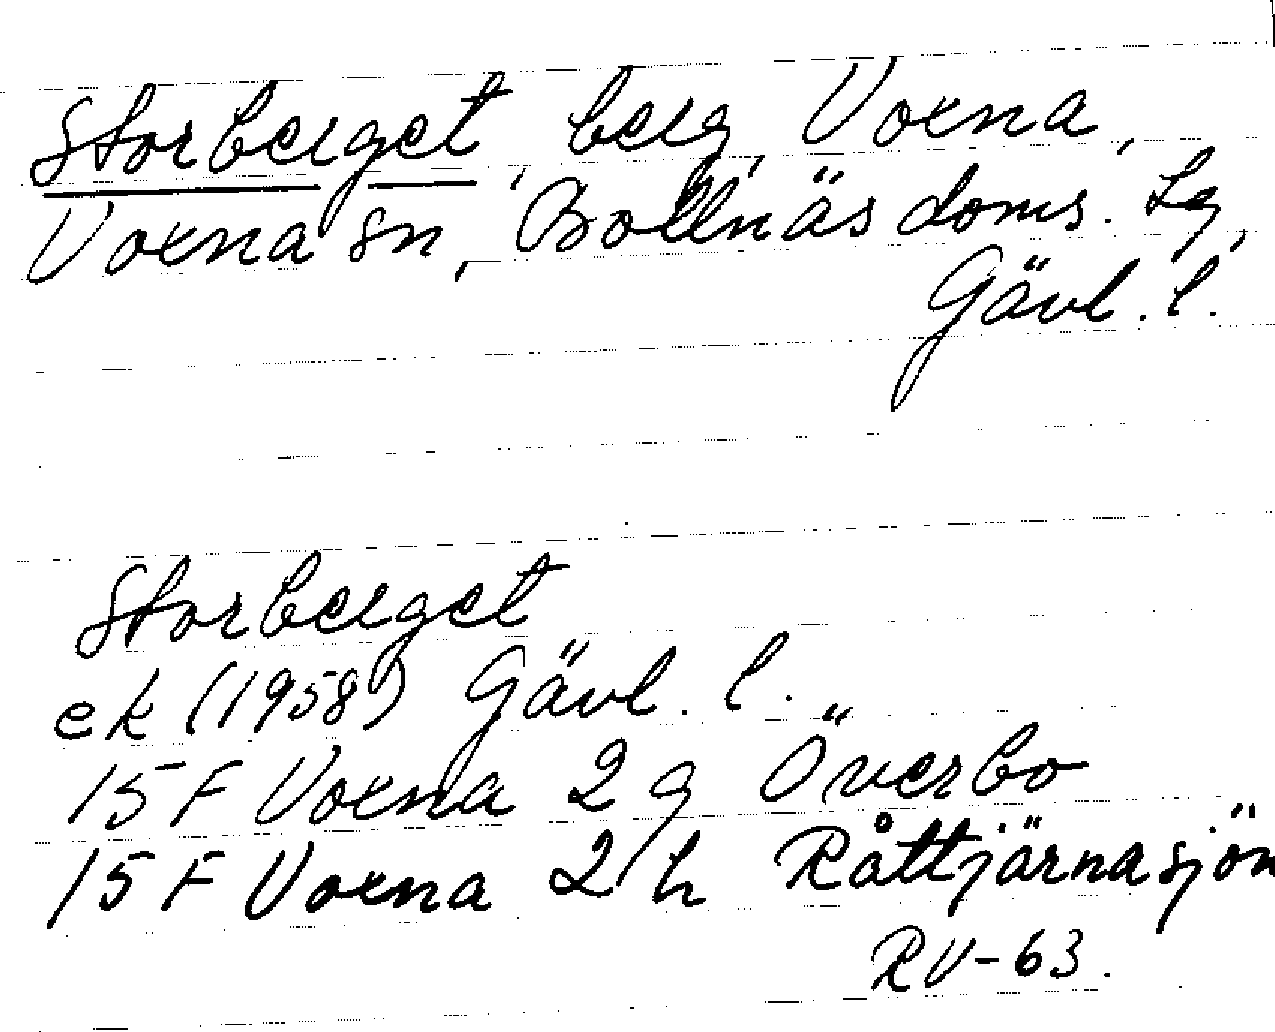 Storberget, berg, Voxna,
Voxna sn, Bollnäs doms. lg,
Gävl. l.
Storberget
ek (1958) Gävl. l.
15 F Voxna 2 g Överbo
15 F Voxna 2 h Råttjärnasjön
RV-63.